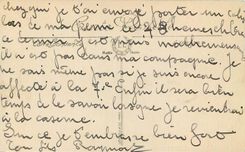 chez qui je t'ai envoyé porter un
cas ce ma
ce est mais malheureusement
il n'est pas dans ma compagnie. Je
ne sais même pas si je suis encore
affecté à la 7e Enfin il sera bien
temps de le savoir lorsque je reviendrai
à la caserne.
Sur ce je t'embrasse bien fort
Ton fils Raymond